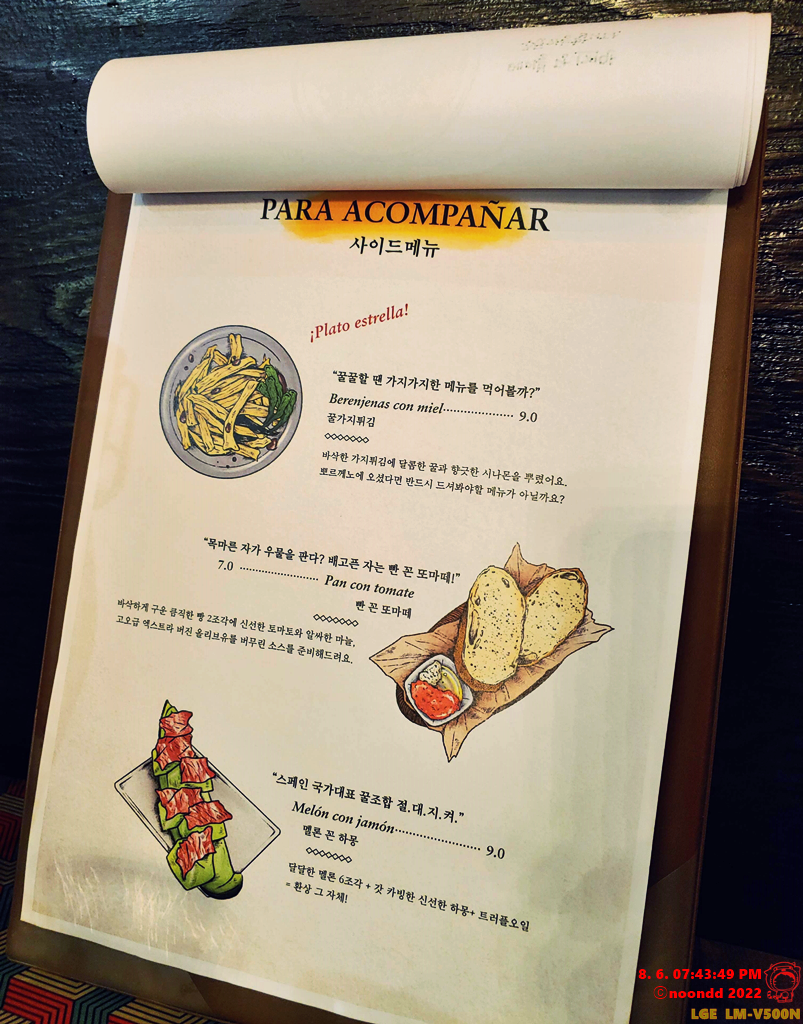 PARA ACOMPAÑAR
사이드메뉴
¡Plato estrella!
“꿀꿀할 땐 가지가지한 메뉴를 먹어볼까?”
Berenjenas con miel.................... 9.0
꿀가지튀김
바삭한 가지튀김에 달콤한 꿀과 향긋한 시나몬을 뿌렸어요.
뽀르께노에 오셨다면 반드시 드셔봐야할 메뉴가 아닐까요?
“목마른 자가 우물을 판다? 배고픈 자는 빤 꼰 또마떼!”
7.0 ....................... Pan con tomate
빤 꼰 또마떼
바삭하게 구운 큼직한 빵 2조각에 신선한 토마토와 알싸한 마늘,
고오급 엑스트라 버진 올리브유를 버무린 소스를 준비해드려요.
“스페인 국가대표 꿀조합 절.대.지.켜.”
Melón con jamón........................ 9.0
멜론 꼰 하몽
달달한 멜론 6조각 + 갓 카빙한 신선한 하몽+ 트러플오일
= 환상 그 자체!
8. 6. 07:43:49 PM
©noondd 2022
LGE LM-V500N